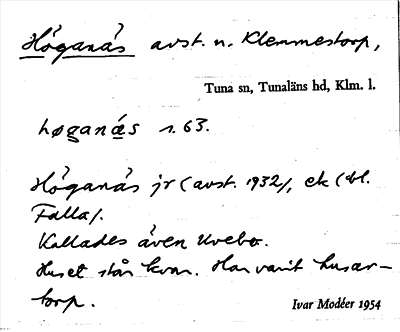 Höganäs avst. u. Klemmestorp,
Tuna sn, Tunaläns hd, Klm. l.
høganæ̀s s. 63.
Höganäs jr (avst. 1932/, ek (bl.
Falla/.
Kallades även Uvebo.
Huset står kvar. Har varit husar-
torp.
Ivar Modéer 1954